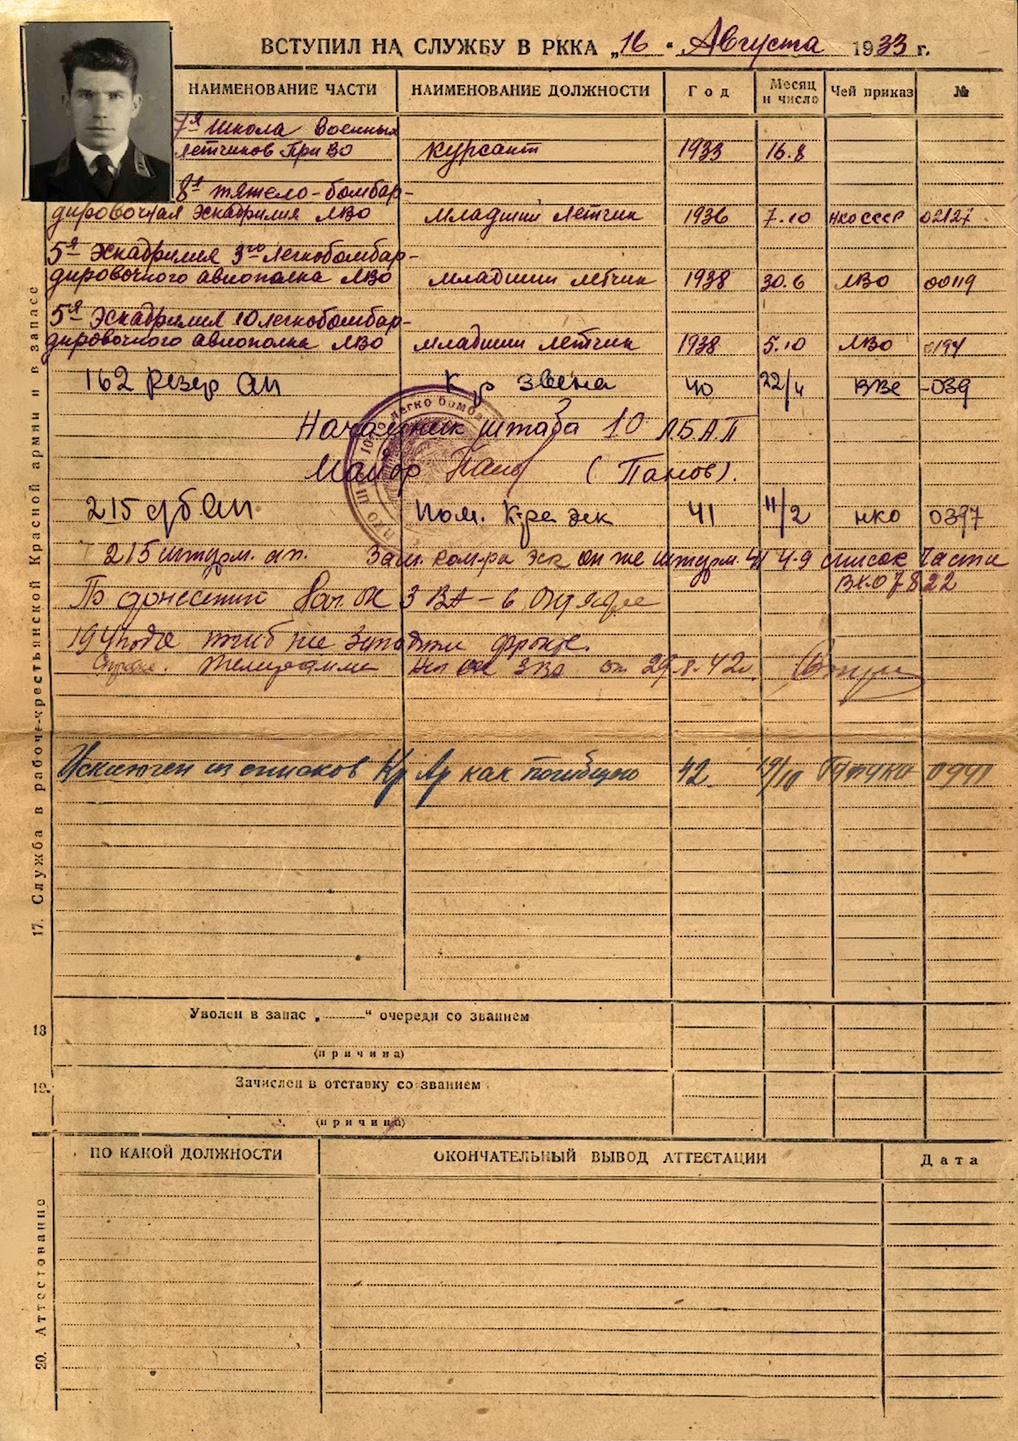 ВСТУПИЛ НА СЛУЖБУ В РККА „16“ Августа 1933 г.
НАИМЕНОВАНИЕ ЧАСТИ НАИМЕНОВАНИЕ ДОЛЖНОСТИ Год Месяц и число Чей приказ №
7я Школа Военных
летчиков ПриВО курсант 1933 16.8
8я тяжело-бомбар-
дировочная Эскадрилия ЛВО младший летчик 1936 7.10 НКО СССР 02127
5я Эскадрилия 3го Легкобомбар-
дировочного авиополка ЛВО младший летчик 1938 30.6 ЛВО 00119
5я Эскадрилия 10 легкобомбар-
дировочного авиополка ЛВО младший летчик 1938 5.10 ЛВО 0194
162 резер АП К-р звена 40 22/4 ВВС -039
Начальник штаба 10 ЛБАП
Майор (Панов).
215 АП Пом. К-ра эск 41 11/2 НКО 0397
215 штурм. ап. Зам. ком-ра эск он же штурм. 41 4.9 список части
ВХ.07822
По донесению Нач ОК 3 ВА - 6
погиб на Западном фронте.
29.8.42г.
Исключен из списков Кр Ар как погибший 42 19/10
17. Служба в рабоче-крестьянской Красной армии и в запасе
18 Уволен в запас „ “ очереди со званием
(причина)
19. Зачислен в отставку со званием
(причина)
ПО КАКОЙ ДОЛЖНОСТИ ОКОНЧАТЕЛЬНЫЙ ВЫВОД АТТЕСТАЦИИ Дата
20. Аттестованно